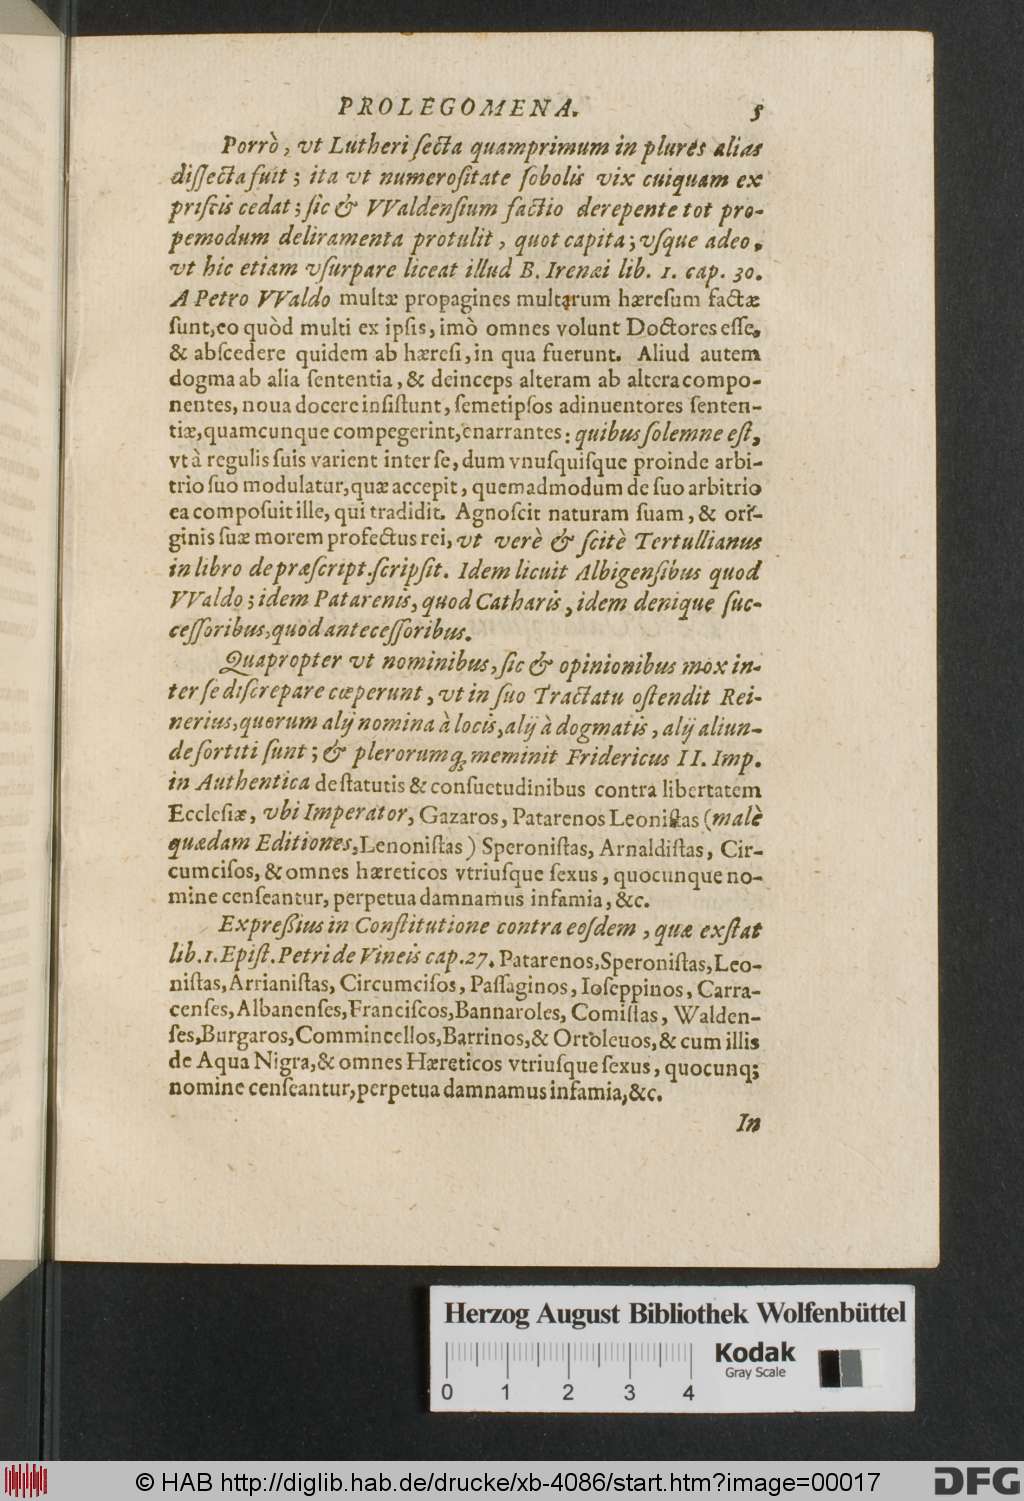 PROLEGOMENA. 5
Porrò, vt Lutheri ſecta quamprimum in plures alias
diſſecta fuit; ita vt numeroſitate ſobolis vix cuiquam ex
priſcis cedat; ſic & VValdenſium factio derepente tot pro-
pemodum deliramenta protulit, quot capita; vſque adeo,
vt hic etiam vſurpare liceat illud B. Irenæi lib. 1. cap. 30.
A Petro VValdo multæ propagines multarum hæreſum factæ
ſunt, eo quòd multi ex ipſis, imò omnes volunt Doctores eſſe,
& abſcedere quidem ab hæreſi, in qua fuerunt. Aliud autem
dogma ab alia ſententia, & deinceps alteram ab altera compo-
nentes, noua docere inſiſtunt, ſemetipſos adinuentores ſenten-
tiæ, quamcunque compegerint, enarrantes: quibus ſolemne eſt,
vt à regulis ſuis varient inter ſe, dum vnuſquiſque proinde arbi-
trio ſuo modulatur, quæ accepit, quemadmodum de ſuo arbitrio
ea compoſuit ille, qui tradidit. Agnoſcit naturam ſuam, & ori-
ginis ſuæ morem profectus rei, vt verè & ſcitè Tertullianus
in libro de præſcript. ſcripſit. Idem licuit Albigenſibus quod
VValdo; idem Patarenis, quod Catharis, idem denique ſuc-
ceſſoribus, quod anteceſſoribus.
Quapropter vt nominibus, ſic & opinionibus mox in-
ter ſe diſcrepare cœperunt, vt in ſuo Tractatu oſtendit Rei-
nerius, quorum alij nomina à locis, alij à dogmatis, alij aliun-
de ſortiti ſunt; & plerorumq; meminit Fridericus II. Imp.
in Authentica de ſtatutis & conſuetudinibus contra libertatem
Eccleſiæ, vbi Imperator, Gazaros, Patarenos Leoniſtas (malè
quædam Editiones, Lenoniſtas) Speroniſtas, Arnaldiſtas, Cir-
cumciſos, & omnes hæreticos vtriuſque ſexus, quocunque no-
mine cenſeantur, perpetua damnamus infamia, &c.
Expreßius in Conſtitutione contra eoſdem, quæ exſtat
lib. 1. Epiſt. Petri de Vineis cap. 27. Patarenos, Speroniſtas, Leo-
niſtas, Arrianiſtas, Circumciſos, Paſſaginos, Ioſeppinos, Carra-
cenſes, Albanenſes, Franciſcos, Bannaroles, Comiſtas, Walden-
ſes, Burgaros, Commincellos, Barrinos, & Ortoleuos, & cum illis
de Aqua Nigra, & omnes Hæreticos vtriuſque ſexus, quocunq;
nomine cenſeantur, perpetua damnamus infamia, &c.
In
Herzog August Bibliothek Wolfenbüttel
Kodak
Gray Scale
0 1 2 3 4
© HAB http://diglib.hab.de/drucke/xb-4086/start.htm?image=00017
DFG